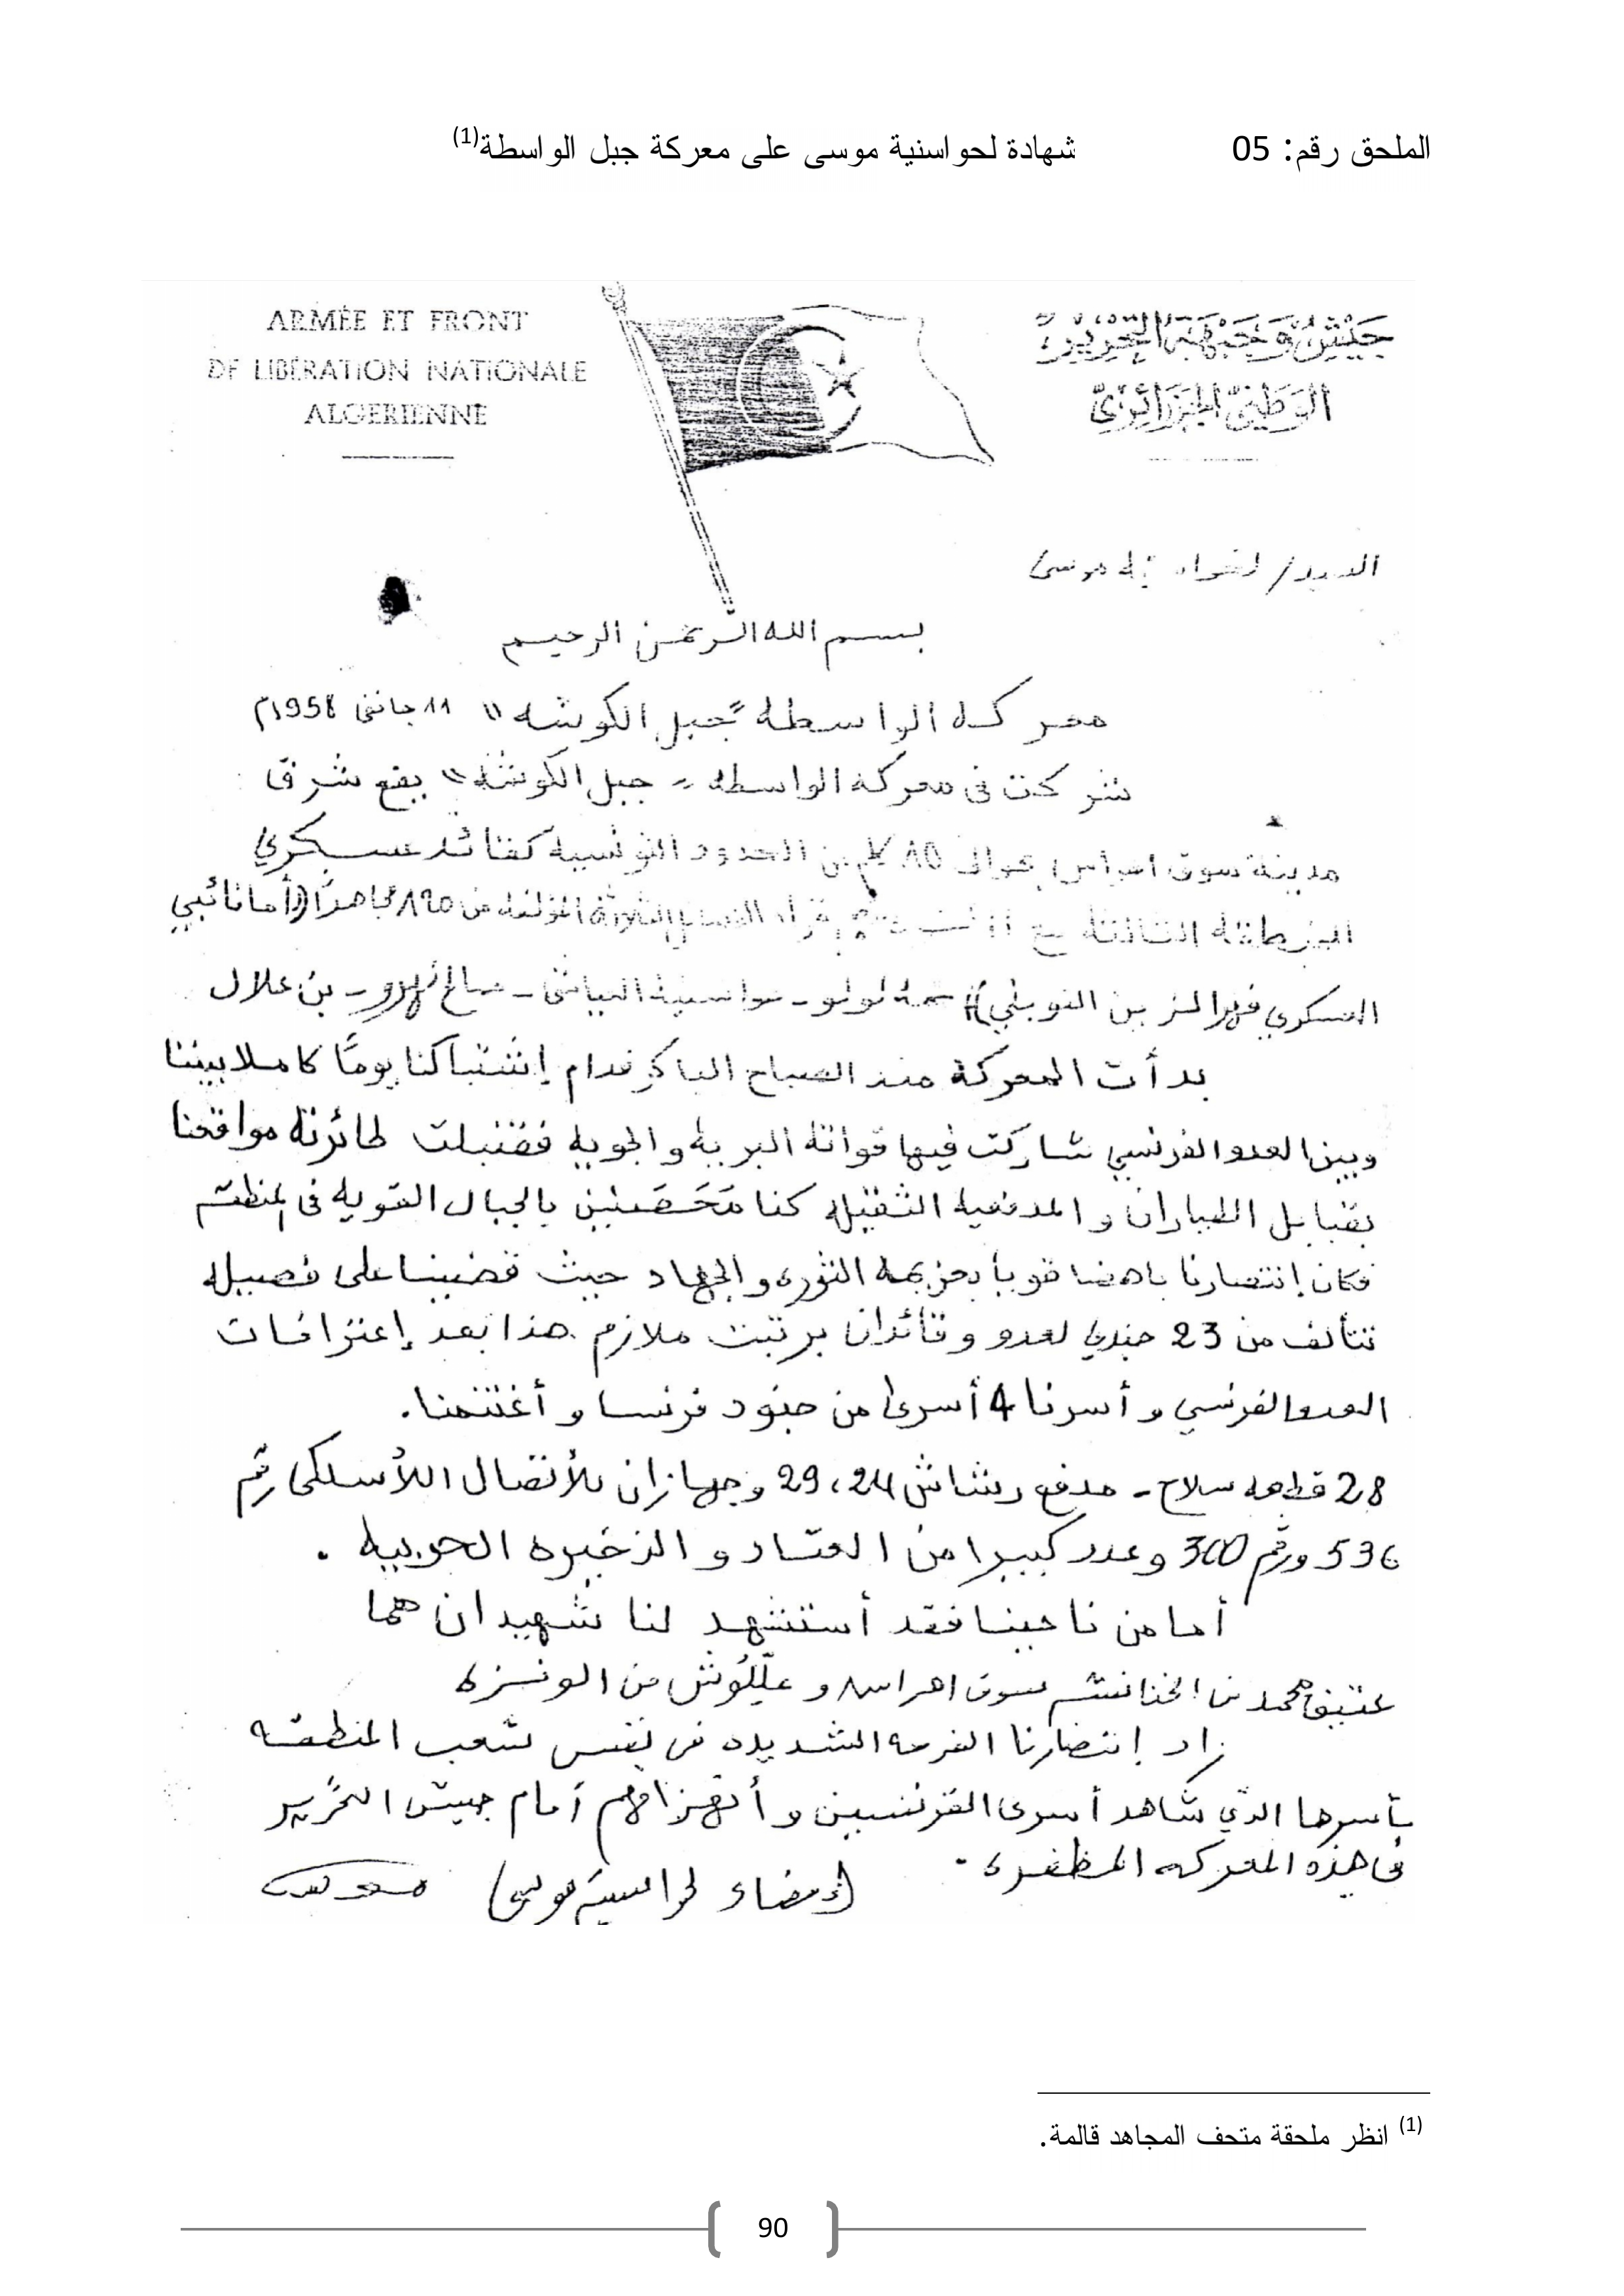 الملحق رقم: 05 شهادة لحواسنية موسى على معركة جبل الواسطة(1)
ARMÉE ET FRONT
DE LIBÉRATION NATIONALE
ALGERIENNE
جَيْشُ وَجَبْهَةُ التَّحْرِيْرِ
الوَطَنِيّ الجَزَائِرِيّ
السيد/ لحواسنية موسى
بسم الله الرحمن الرحيم
معركة الواسطة "جبل الكوشة" 11 جانفي 1958م
شركت في معركة الواسطة " جبل الكوشة" يقع شرق
مدينة سوق اهراس بحوالى كلم من الحدود التونسية كقائد عسكري
الثالثة مجاهدًا (أما نائبي
العسكري بن علال
بدأت المعركة منذ الصباح الباكر فدام إشتباكنا يومًا كاملا بيننا
وبين العدو الفرنسي شاركت فيها قواته البرية والجوية فقنبلت طائرته مواقعنا
بقنابل الطياران والمدفعية الثقيلة كنا مَحَصَنين بالجبال القوية فى المنطقة
فكان إنتصارنا باهضا قويا بعزيمة الثورة والجهاد حيث قضينا على فصيلة
تتألف من 23 جندي لعدو وقائدان برتبت ملازم هذا بعد إعترافات
العدو الفرنسي وأسرنا 4 أسرى من جنود فرنسا وأغتنمنا.
28 قطعة سلاح - مدفع رشاش 24، 29 وجهازان للأتصال اللأسلكى رقم
536 ورقم 300 وعدد كبيرا من العتاد والذخيرة الحربية .
أما من ناحينا فقد أستشهد لنا شهيدان هما
عتيق محمد من الخنانشة سوق اهراس و علّلُوش من الونزة
زاد إنتصارنا الفرحة الشديدة فى نفس شعب المنطقة
بأسرها الذي شاهد أسرى الفرنسين وأنهزامهم أمام جيش التحرير
فى هذه المعركة المظفرة.
(إمضاء لحواسنية موسى)
(1) انظر ملحقة متحف المجاهد قالمة.
90